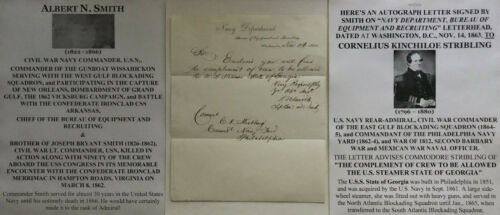 ALBERT N. SMITH
(1822 - 1866)
CIVIL WAR NAVY COMMANDER, U.S.N.,
COMMANDER OF THE GUNBOAT WISSAHICKON
SERVING WITH THE WEST GULF BLOCKADING
SQUADRON, and PARTICIPATING IN THE CAPTURE
OF NEW ORLEANS, BOMBARDMENT OF GRAND
GULF, THE 1862 VICKSBURG CAMPAIGN, and BATTLE
WITH THE CONFEDERATE IRONCLAD CSS
ARKANSAS,
CHIEF OF THE BUREAU OF EQUIPMENT AND
RECRUITING
&
BROTHER OF JOSEPH BRYANT SMITH (1826-1862),
CIVIL WAR LT. COMMANDER, USN, KILLED IN
ACTION ALONG WITH NINETY OF THE CREW
ABOARD THE USS CONGRESS IN ITS MEMORABLE
ENCOUNTER WITH THE CONFEDERATE IRONCLAD
MERRIMAC IN HAMPTON ROADS, VIRGINIA ON
MARCH 8, 1862.
Commander Smith served for almost 30 years in the United States
Navy until his untimely death in 1866. He would have certainly
made it to the rank of Admiral!
Navy Department
Bureau of Equipment & Recruiting
Nov 14
Sir:
Enclosed you will find
the complement of crew to be allowed
the U.S. Steamer "State of Georgia"
Very Respectfully
Your
A. N. Smith
Commo
C. K. Stribling
Comdt Navy Yard
Philadelphia
HERE'S AN AUTOGRAPH LETTER SIGNED BY
SMITH ON "NAVY DEPARTMENT, BUREAU OF
EQUIPMENT AND RECRUITING" LETTERHEAD,
DATED AT WASHINGTON, D.C., NOV. 14, 1863, TO
CORNELIUS KINCHILOE STRIBLING
(1796 - 1880)
U.S. NAVY REAR-ADMIRAL, CIVIL WAR COMMANDER
OF THE EAST GULF BLOCKADING SQUADRON (1864-
5), and COMMANDANT OF THE PHILADELPHIA NAVY
YARD (1862-4), and WAR OF 1812, SECOND BARBARY
WAR and MEXICAN WAR NAVAL OFFICER.
THE LETTER ADVISES COMMODORE STRIBLING OF
"THE COMPLEMENT OF CREW TO BE ALLOWED
THE U.S. STEAMER STATE OF GEORGIA".
The U.S.S. State of Georgia was built in Philadelphia in 1851,
and was acquired by the U.S. Navy in Sept. 1861. A large side-
wheel steamer, she was fitted out with heavy guns, and served in
the North Atlantic Blockading Squadron until Jan., 1865, when
transferred to the South Atlantic Blockading Squadron.